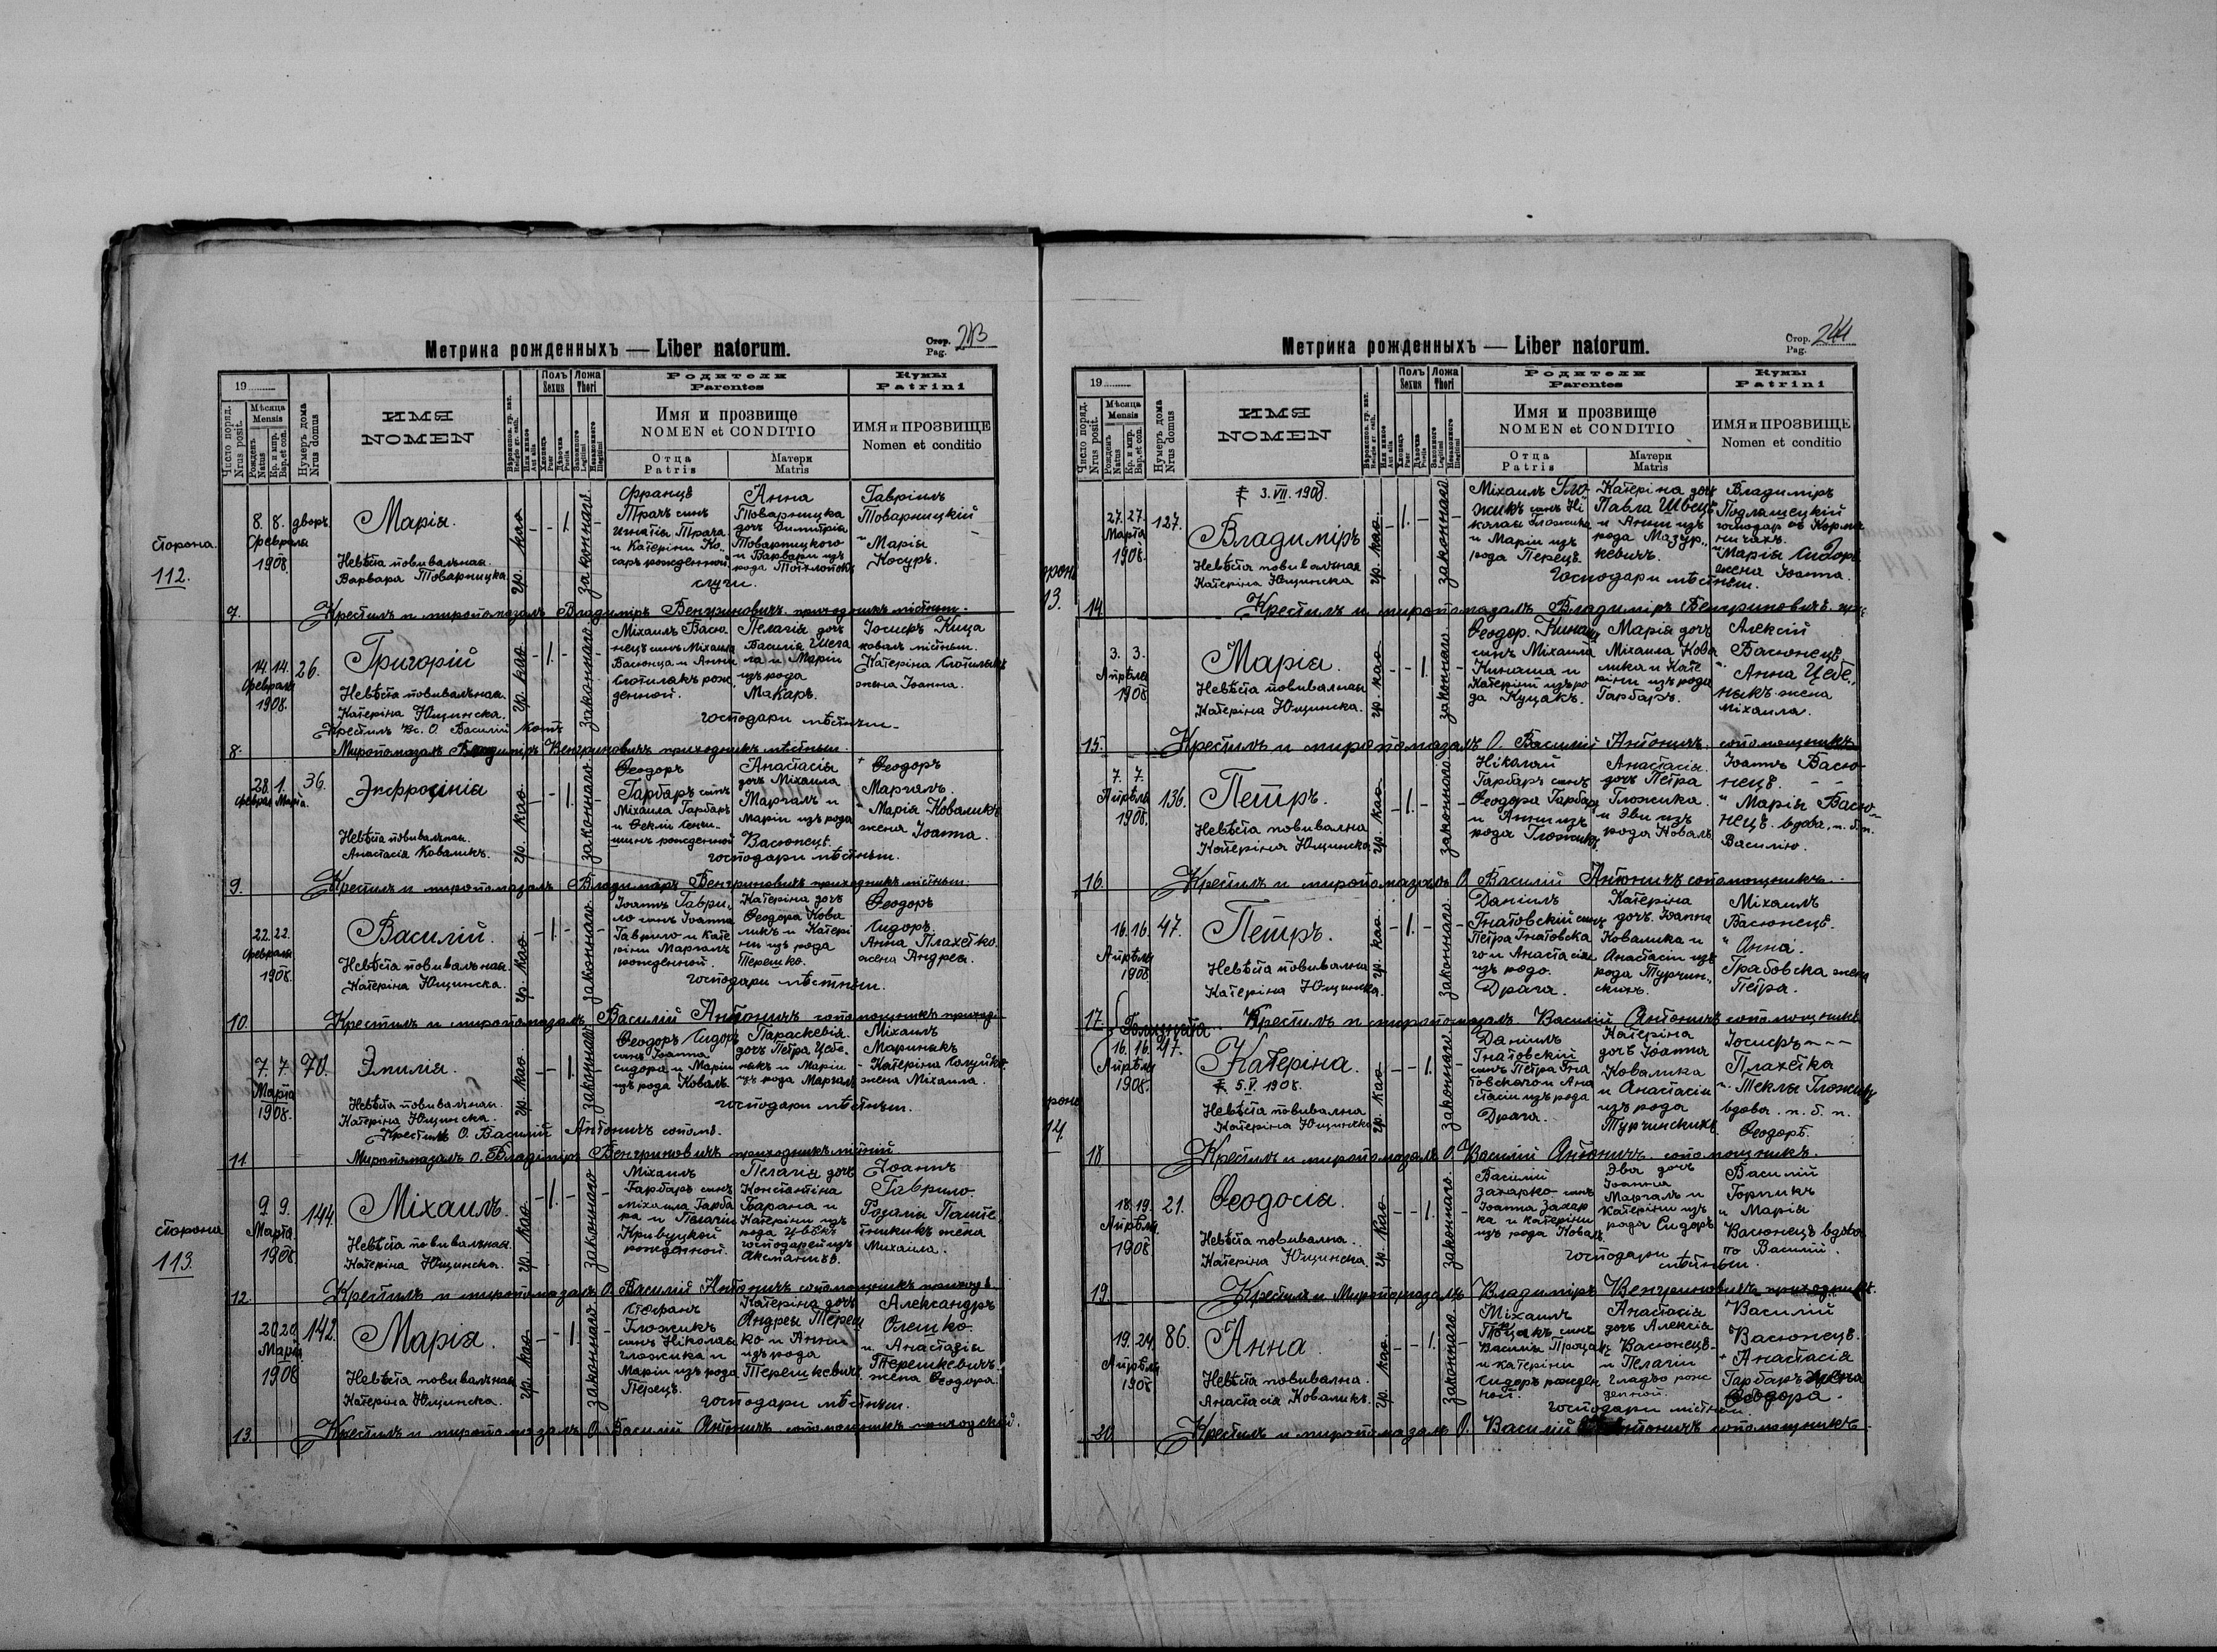 Метрика рожденныхъ — Liber natorum.
Стор. Pag. 243
19
Число поряд. Nrus posit.
Мѣсяца Mensis
Рожденъ Natus
Кр. и мир. Bap. et con.
Нумеръ дома Nrus domus
ИМЯ
NOMEN
Полъ Sexus
Ложа Thori
Родители
Parentes
Имя и прозвище
NOMEN et CONDITIO
Отца Patris
Матери Matris
Кумы
Patrini
ИМЯ и ПРОЗВИЩЕ
Nomen et conditio
сторона
112.
8. 8. дворъ
Февраля
1908.
Марія.
Невѣста повивальная.
Варвара Товарницка
гр. као
законнаго
Францъ
Трачъ синъ
Игнатія Трача
и Катерини Ко-
саръ рожденной
Анна
Товарницка
доч Димитрія
Товарницкого
и Варвари изъ
рода
слуги.
Гавріилъ
Товарницкій
" Марія
Косуръ.
7. Крестилъ и миропомазалъ Владиміръ Венгриновичъ приходникъ мѣстный.
14. 14. 26.
Февраля
1908.
Григорій
Невѣста повивальная.
Катеріна Ющинска.
гр. као
законнаго
Міхаилъ Васю-
нецъ синъ Міхаила
Васюнца и Анни
рож-
денной.
Пелагія доч
Василія Щега
ла и Маріи
изъ рода
Макаръ.
господари мѣстныи
Іосифъ Кица
коваль мѣстный.
Катеріна
жена Іоанна.
Крестилъ Вс. О Василій
8. Миропомазалъ Владиміръ Венгриновичъ приходникъ мѣстный.
28. 1. 36.
Феврал Марта.
Эвфросинія
Невѣста повивальна.
Анастасія Коваликъ.
гр. као
законнаго
Феодоръ
Гарбаръ синъ
Міхаила Гарбаръ
и Фекли
рожденной
Анастасія
доч Міхаила
Маргалъ и
Маріи изъ рода
Васюнецъ.
господари мѣстныи.
Феодоръ
Маргалъ.
" Марія Коваликъ
жена Іоанна.
9. Крестилъ и миропомазалъ Владиміръ Венгриновичъ приходникъ мѣстный.
22. 22.
Февраля
1908.
Василій.
Невѣста повивальная.
Катеріна Ющинска.
гр. као
законнаго
Іоаннъ Гаври-
ло синъ Іоанна
Гаврило и Кате
ріни Маргалъ
рожденной.
Катеріна доч
Феодора Кова
ликъ и Катері
ни изъ рода
Терешко.
господари мѣстныи.
Феодоръ
Сидоръ.
Анна Плахетко.
жена Андрея.
10. Крестилъ и миропомазалъ Василій Антоничъ сопомощникъ приход
7. 7. 70.
Марта
1908.
Эмилія.
Невѣста повивальная.
Катеріна Ющинска.
гр. као
законнаго
Феодоръ Сидоръ
синъ Іоанна
Сидора и Маріи
изъ рода Коваль.
Параскевія.
доч Петра Цебе-
накъ и Маріи
изъ рода Маргалъ
господари мѣстныи.
Міхаилъ
Мариникъ
Катеріна
жена Міхаила.
Крестилъ О. Василій Антоничъ сопом.
11. Миропомазалъ О. Владиміръ Венгриновичъ приходникъ мѣстный
сторона
113.
9. 9. 144.
Марта
1908.
Міхаилъ.
Невѣста повивальная.
Катеріна Ющинска.
гр. као
законнаго
Міхаилъ
Гарбаръ синъ
Міхаила Гарба
ра и Пелагіи
Кривуцкой
рожденной.
Пелагія доч
Константина
Барана и
Катеріни изъ
рода
господарей изъ
Іоаннъ
Гаврило.
Розалія
жена
Михаила.
12. Крестилъ и миропомазалъ О. Василій Антоничъ сопомощникъ приход
20 20 142.
Марта
1908
Марія.
Невѣста повивальная
Катеріна Ющинска.
гр. као
законнаго
Стефанъ
Гложикъ
синъ Ніколая
Гложика и
Маріи изъ рода
Перецъ.
Катеріна доч
Андрея Тереш
ко и Анни
изъ рода
Терешкевичъ.
господари мѣстныи.
Александръ
Олешко.
и Анастазія
Терешкевичъ.
жена Феодора.
13. Крестилъ и миропомазалъ О. Василій Антоничъ сопомощникъ приходскій.
Метрика рожденныхъ — Liber natorum.
Стор. Pag. 244
19
Число поряд. Nrus posit.
Мѣсяца Mensis
Рожденъ Natus
Кр. и мир. Bap. et con.
Нумеръ дома Nrus domus
ИМЯ
NOMEN
Полъ Sexus
Ложа Thori
Родители
Parentes
Имя и прозвище
NOMEN et CONDITIO
Отца Patris
Матери Matris
Кумы
Patrini
ИМЯ и ПРОЗВИЩЕ
Nomen et conditio
3. VII. 1908.
27. 27. 127.
Марта
1908.
Владиміръ
Невѣста повивальная
Катеріна Ющинска
гр. као
законнаго
Міхаилъ Гло-
жикъ синъ Ні
колая Гложика
и Маріи изъ
рода Перецъ.
Катеріна доч
Павла Швецъ
и Анни изъ
рода Мазур-
кевичъ.
Господари мѣстныи.
Владиміръ
Подлашецкій
господар въ Корма
ничахъ.
" Марія Сидоръ
жена Іоанна.
14 Крестилъ и миропомазалъ Владиміръ Венгриновичъ
3. 3.
Апрѣля
1908
Марія.
Невѣста повивальная
Катеріна Ющинска.
гр. као
законнаго
Феодор. Кинаш
синъ Міхаила
Кинаша и
Катеріни изъ ро
да Куцакъ.
Марія доч
Міхаила Кова
лика и Кате
ріни изъ рода
Гарбаръ.
Алексій
Васюнецъ
" Анна Цебе-
никъ жена
Міхаила.
15. Крестилъ и миропомазалъ О. Василій Антоничъ, сопомощникъ
7. 7. 136.
Апрѣля
1908.
Петръ.
Невѣста повивальна
Катеріна Ющинска
гр. као
законнаго
Ніколай
Гарбаръ синъ
Феодора Гарбар
и Анни изъ
рода Гложикъ
Анастасія.
доч Петра
Гложика.
и Эви изъ
рода Коваль
Іоаннъ Васю-
нецъ.
" Марія Васю-
нецъ. вдова, п. б. п.
Василію.
16. Крестилъ и миропомазалъ О Василій Антоничъ сопомощникъ.
16. 16. 47.
Апрѣля
1908
Петръ.
Невѣста повивальна
Катеріна Ющинска.
гр. као
законнаго
Даніилъ
Гнатовскій синъ
Петра Гнатовска
го и Анастасіи
изъ рода.
Драга.
Катеріна
доч. Іоанна
Ковалика и
Анастасіи изъ
рода Турчин-
скихъ.
Міхаилъ
Васюнецъ.
" Анна
Грабовска жена
Петра.
17. Крестилъ и миропомазалъ Василій Антоничъ сопомощникъ
Близнята
16. 16. 47.
Апрѣля
1908.
Катеріна.
5. V. 1908.
Невѣста повивальна
Катеріна Ющинска
гр. као
законнаго
Даніилъ
Гнатовскій
синъ Петра Гна
товского и Ана
стасіи изъ рода
Драга.
Катеріна
доч Іоанна
Ковалика
и Анастасіи
изъ рода
Турчинскихъ
Іосифъ
Плахетка
и Теклы Гложикъ
вдова. п. б. п.
Феодорѣ.
18 Крестилъ и миропомазалъ О. Василій Антоничъ. сопомощникъ.
18. 19. 21.
Апрѣля
1908
Феодосіа.
Невѣста повивална.
Катеріна Ющинска.
гр. као
законнаго
Василій
Захарко синъ
Іоанна Захар
ка и Катеріни
изъ рода Коваль
Эва доч
Іоанна
Маргалъ и
Катеріни изъ
рода Сидоръ
господари мѣстныи.
Василій
Горникъ
и Марія
Васюнецъ вдова
по Василіи.
19. Крестилъ и Миропомазалъ Владиміръ Венгриновичъ приходникъ.
19. 24. 86.
Апрѣля
1908
Анна.
Невѣста повивална.
Анастасія Коваликъ.
гр. као
законнаго
Міхаилъ
Процакъ синъ
Василія Процакъ
и Катеріни
Сидоръ рожден
ной.
Анастасія
доч Алексія
Васюнецъ
и Пелагіи
рож
денной.
господари мѣстныи
Василій
Васюнецъ.
Анастасія
Гарбаръ жена
Феодора.
20 Крестилъ и миропомазалъ О. Василій Антоничъ сопомощникъ.